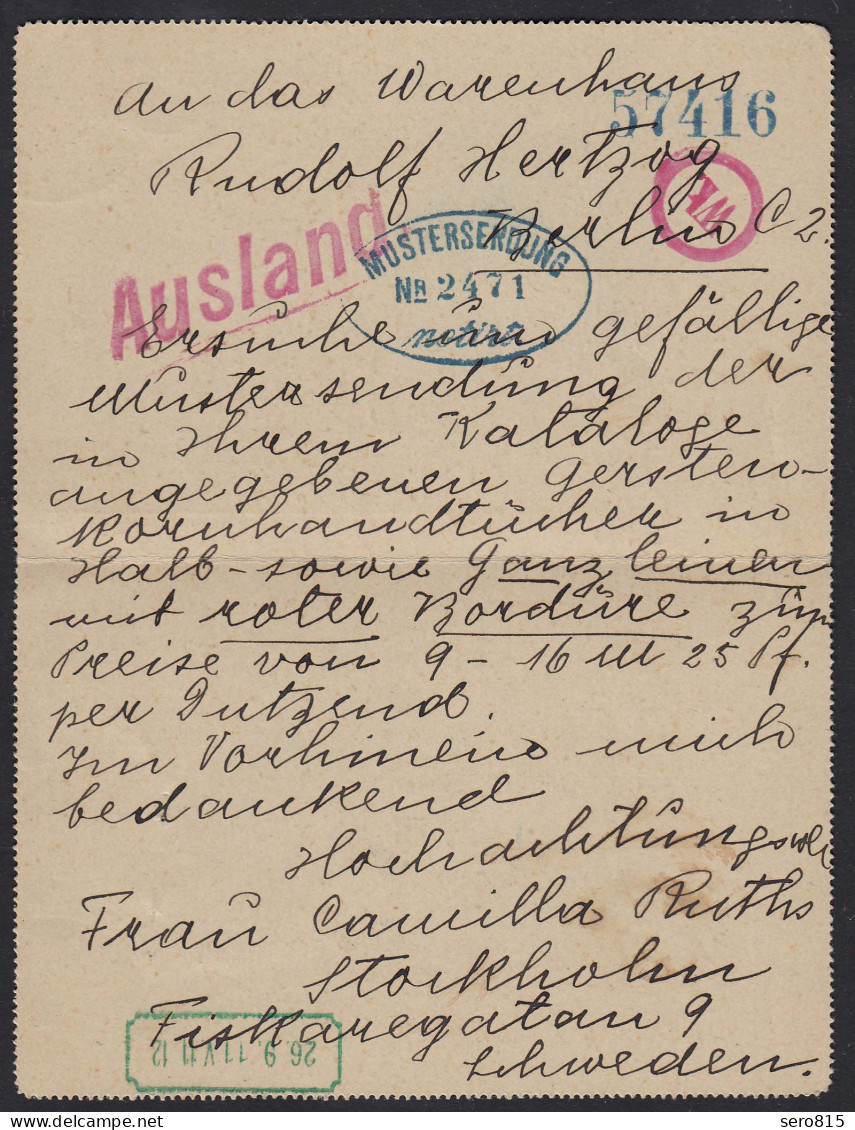 An das Warenhaus
57416
Rudolf Hertzog
Berlin C 2.
WK
Ausland.
MUSTERSENDUNG
No 2471
notirt
Ersuche um gefällige
Mustersendung der
in Ihrem Kataloge
angegebenen Gersten-
kornhandtücher in
Halb- sowie Ganzleinen
mit roter Bordüre zum
Preise von 9 - 16 M 25 Pf.
per Dutzend.
Im Vorhinein mich
bedankend
Hochachtungsvoll
Frau Camilla Ruths
Stockholm
Fiskaregatan 9
Schweden.
26.9.11 V 11 12
sero815